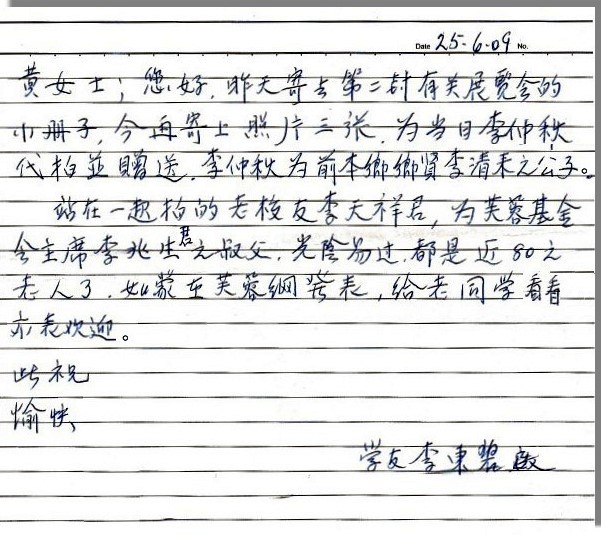 Date 25-6-09 No.
黄女士；您好，昨天寄去第二封有关展覽会的
小册子，今再寄上照片三张，为当日李仲秋
代拍並贈送，李仲秋为前本鄉鄉賢李清耒之公子。
站在一起拍的老校友李天祥君，为芙蓉基金
会主席李兆生君之叔父，光陰易过，都是近80之
老人了，如蒙在芙蓉網发表，给老同学看看
亦表欢迎。
此祝
愉快
学友李東碧啟